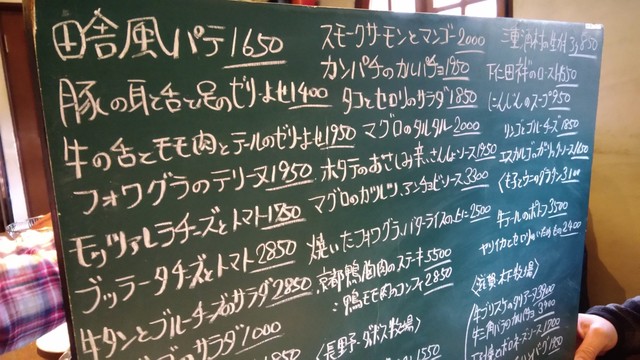 田舎風パテ 1650
豚の耳と舌と足のゼリーよせ 1400
牛の舌とモモ肉とテールのゼリーよせ 1950
フォワグラのテリーヌ 1950
モッツァレラチーズとトマト
ブッラータチーズとトマト 2850
牛タンとブルーチーズのサラダ 2850
のサラダ 1000
スモークサーモンとマンゴー 2000
カンパチのカルパチョ 1950
タコとセロリのサラダ 1850
マグロのタルタル 2000
ホタテのおさしみ 赤さんしょソース 1950
マグロのカツレツ、アンチョビソース 3300
焼いたフォワグラ、バターライスの上に 2500
京都鴨胸肉のステーキ 5500
鴨モモ肉のコンフィ 2850
〈長野・ダボス牧場〉
1550
850
下仁田ネギのロースト
にんじんのスープ 950
リンゴとブルーチーズ 1850
エスカルゴのガーリックソース 1650
3100
牛テールのポトフ 3500
ヤリイカとセロリのいためもの 2400
〈滋賀 木下牧場〉